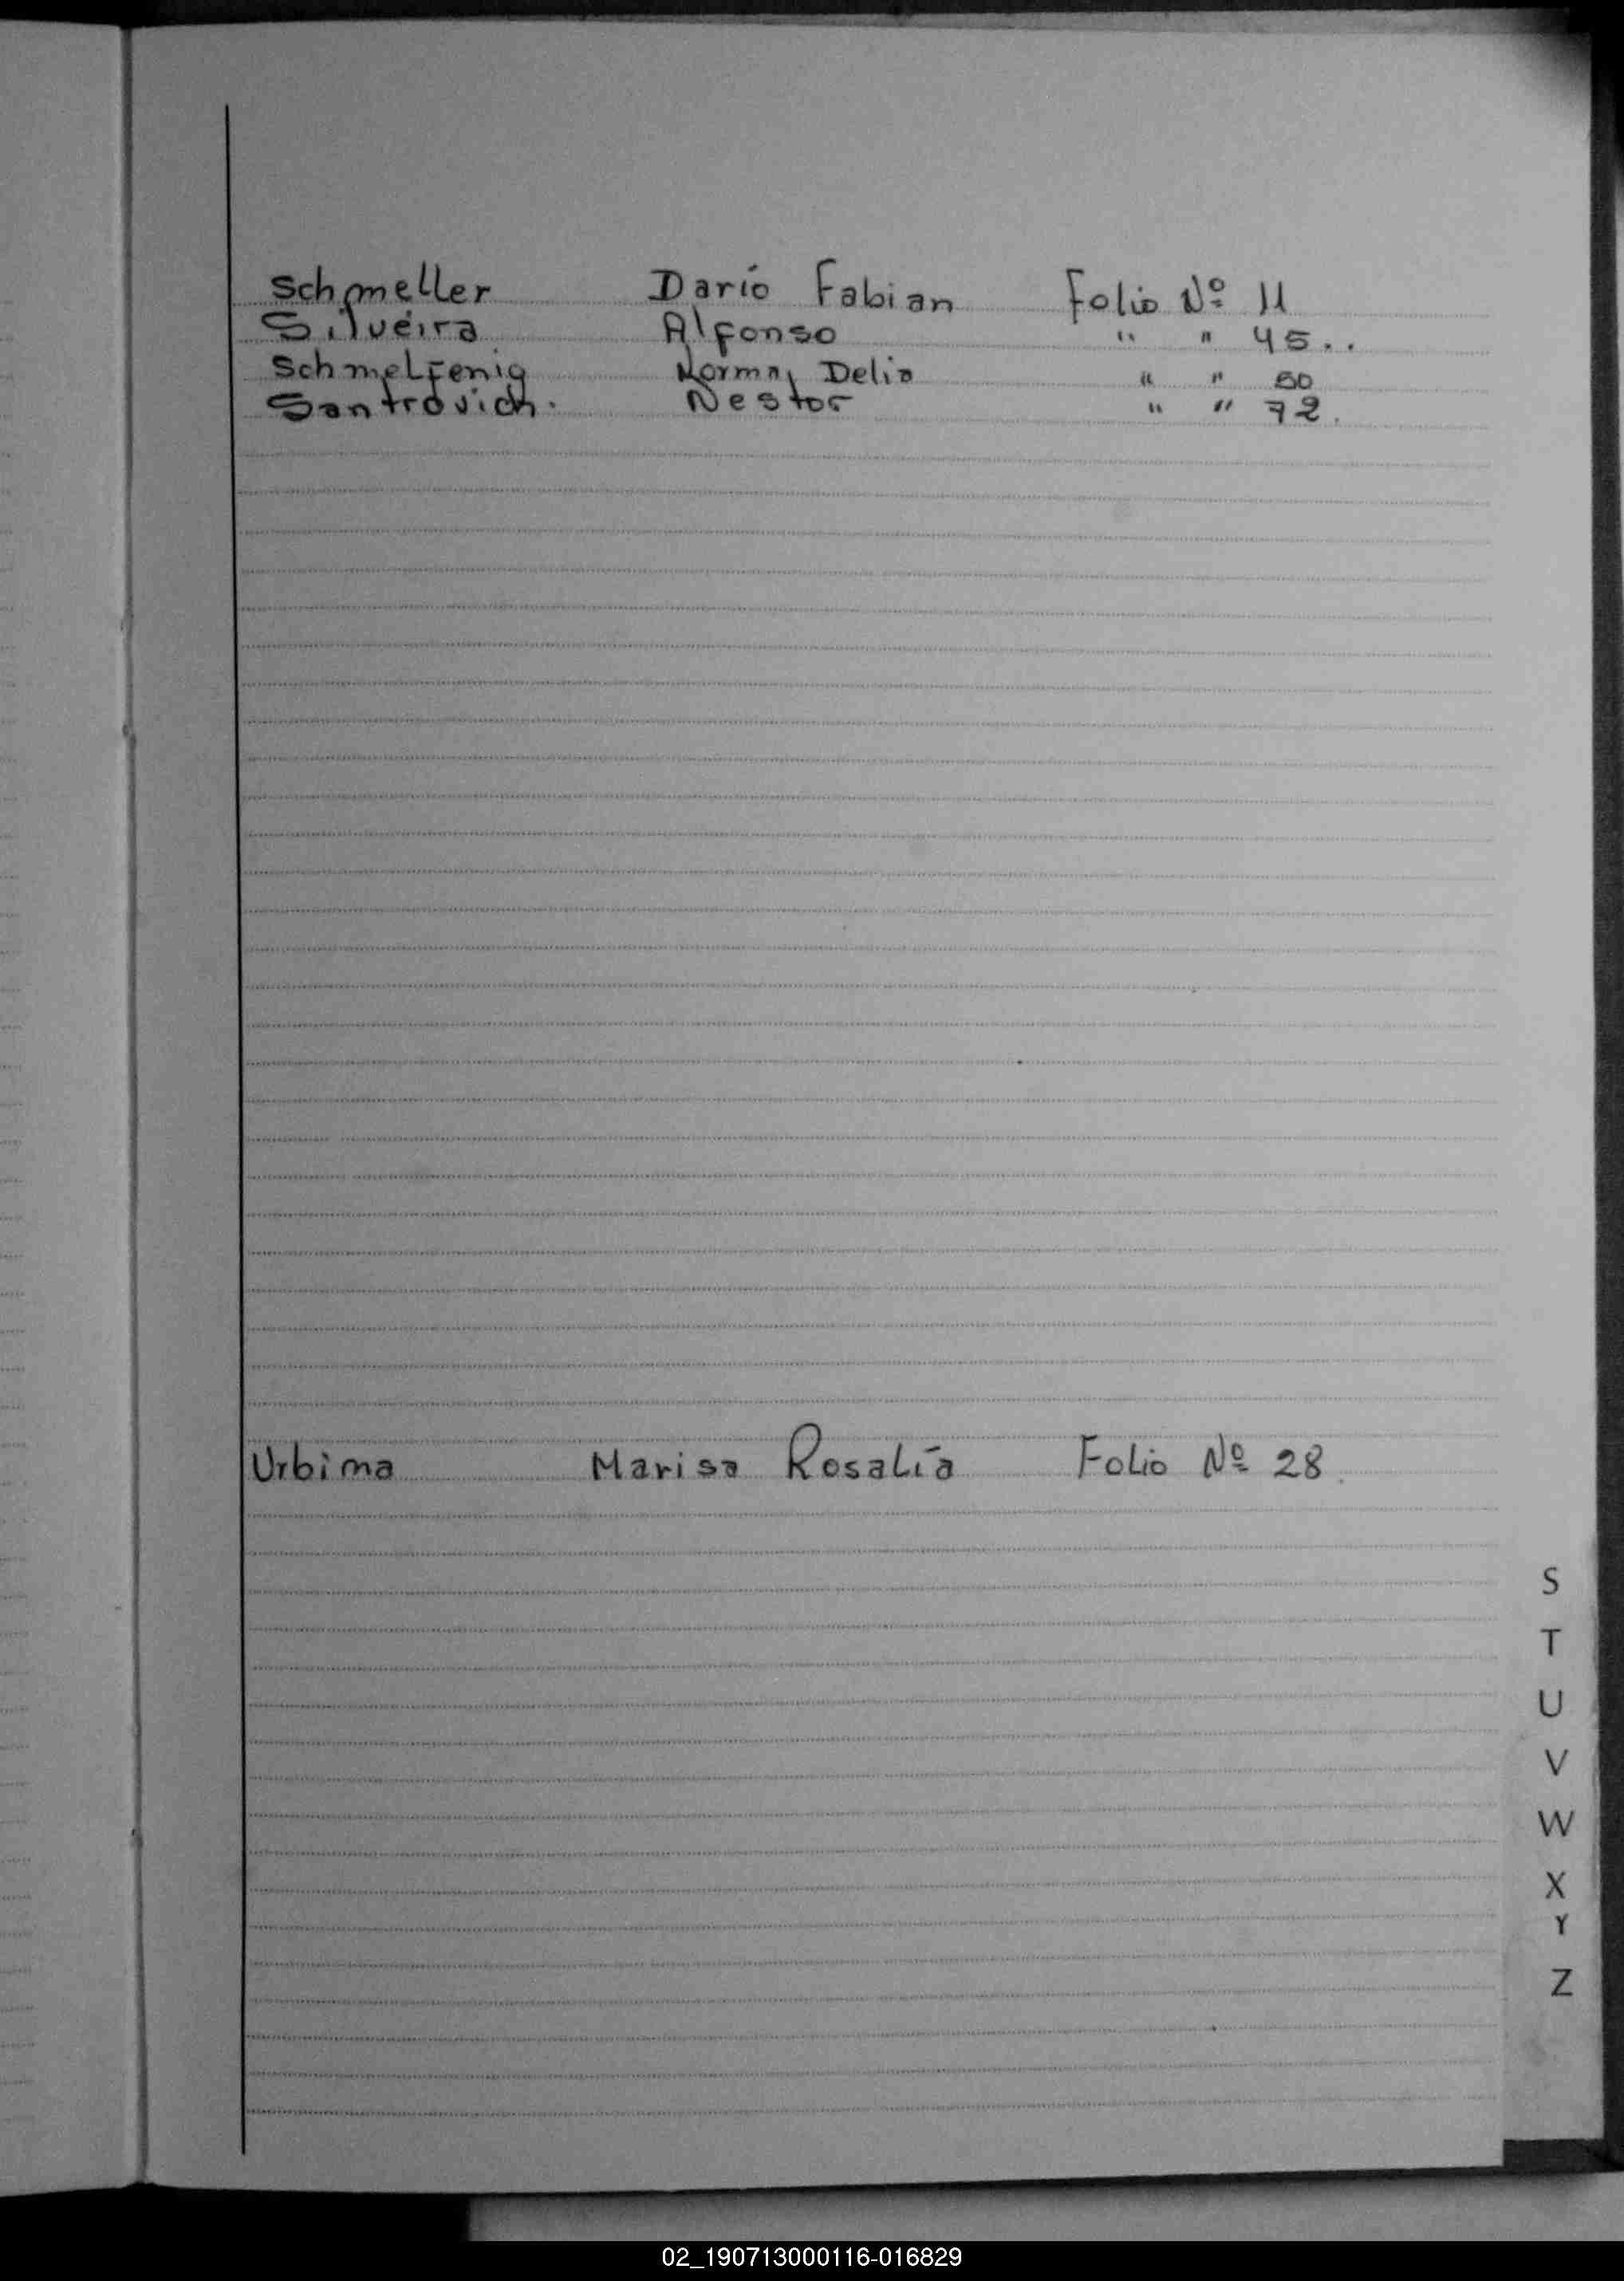 Schmeller Darío Fabian Folio Nº 11
Silveira Alfonso " " 45..
Schmelfenig Norma, Delia " " 50
Santrovich. Nestor " " 72.
Urbima Marisa Rosalía Folio Nº 28.
S
T
U
V
W
X
Y
Z
02_190713000116-016829